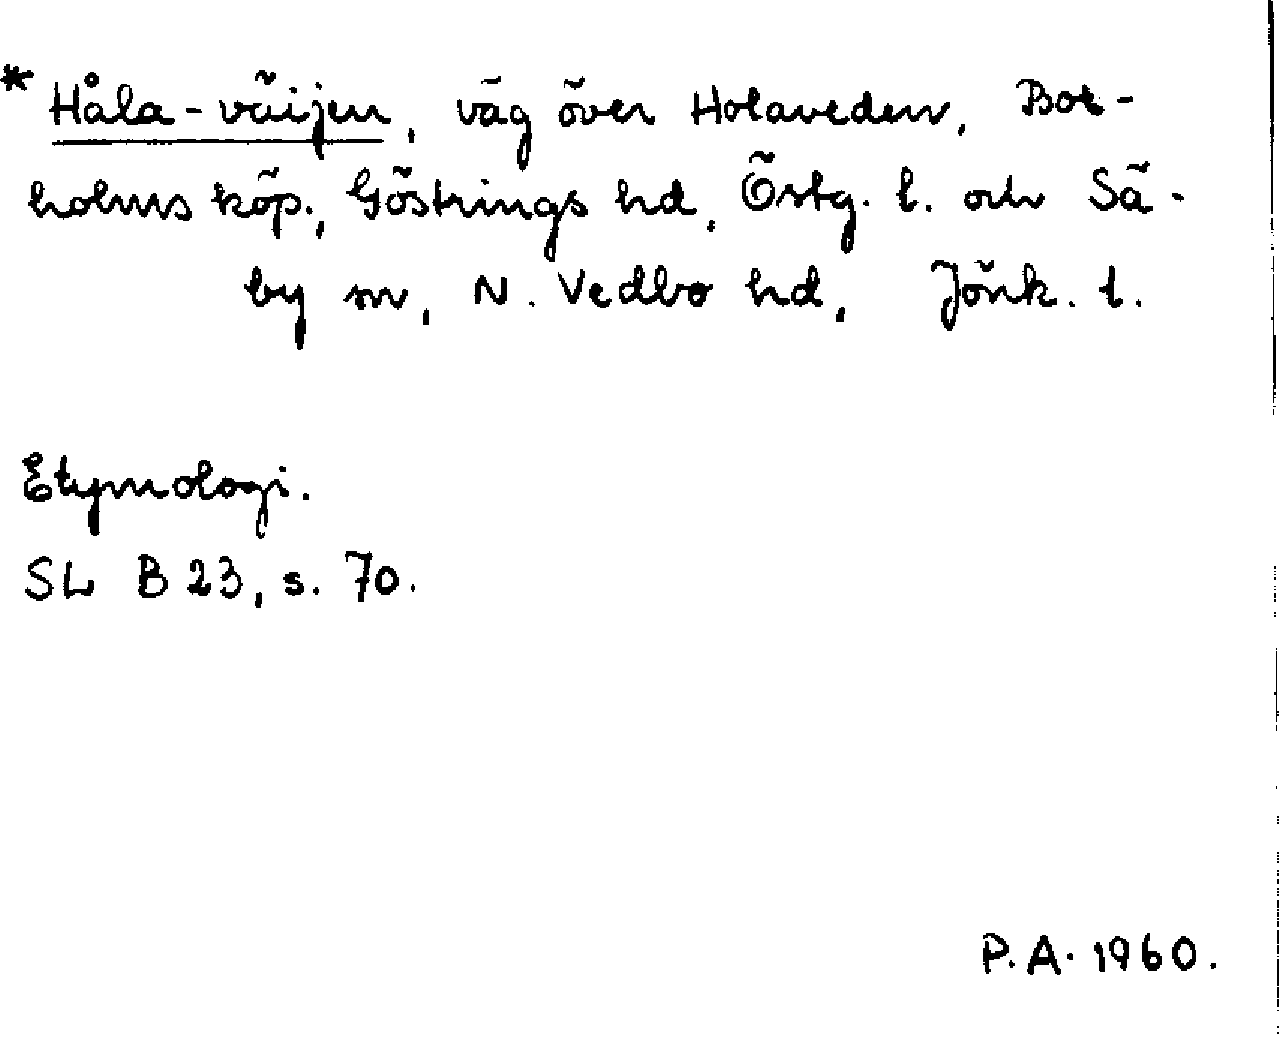 * Håla-väijen, väg över Holaveden, Box-
holms köp., Göstrings hd, Östg. l. och Sä-
by sn, N. Vedbo hd, Jönk. l.
Etymologi.
SL B 23, s. 70.
P.A. 1960.